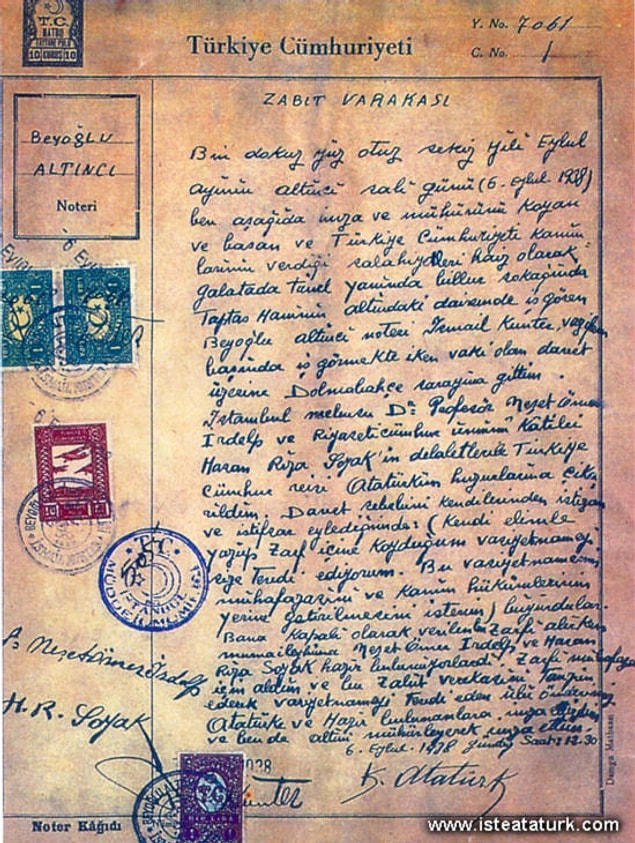 T.C.
MATBU
10 KURUŞ 10
Türkiye Cümhuriyeti
Y. No. 7061
C. No. 1
ZABIT VARAKASI
Beyoğlu
ALTINCI
Noteri
Bin dokuz yüz otuz sekiz yılı Eylul
ayının altıncı salı günü (6. Eylul. 1938)
ben aşağıda imza ve mühürünü koyan
ve basan ve Türkiye Cümhuriyeti kanun
larının verdiği salahiyetleri haiz olarak
galatada tünel yanında billur sokağında
Taptas Hanının altındaki dairemde iş gören
Beyoğlu altıncı noteri İsmail Kunter, vazifem
başında iş görmekte iken vaki olan davet
üzerine Dolmabahçe sarayına gittim.
İstanbul mebusu Dr. Profesör Neşet Ömer
Irdelp ve Riyaseticümhur umumi Katibi
Hasan Rıza Soyak'ın delaletlerile Türkiye
Cümhur reisi Atatürkün huzurlarına çıka
rıldım. Davet sebebini kendilerinden istizan
ve istifsar eylediğimde: (Kendi elimle
yazıp Zarf içine Koyduğum vasiyetnameyi
size Tevdi ediyorum. Bu vasiyetnamenin
muhafazasını ve kanun hükümlerinin
yerine getirilmesini isterim) buyurdular.
Bana kapalı olarak verilen Zarfı alırken
mumaileyhima Neşet Ömer Irdelp ve Hasan
Rıza Soyak hazır bulunuyorlardı. Zarfı muhafaza
için aldım ve bu Zabıt verakasını Tanzim
ederek vasiyetnameyi Tevdi eden ulu önderimiz
Atatürke ve Hazır bulunanlara imza ettirdim
ve ben de altını mühürleyerek imza ettim.
6. Eylul. 1938 Saat: 12.30
T.C.
İSTANBUL
Neşet Ömer İrdelp
H. R. Soyak
K. Atatürk
Noter Kâğıdı
Damga Matbaası
www.isteataturk.com